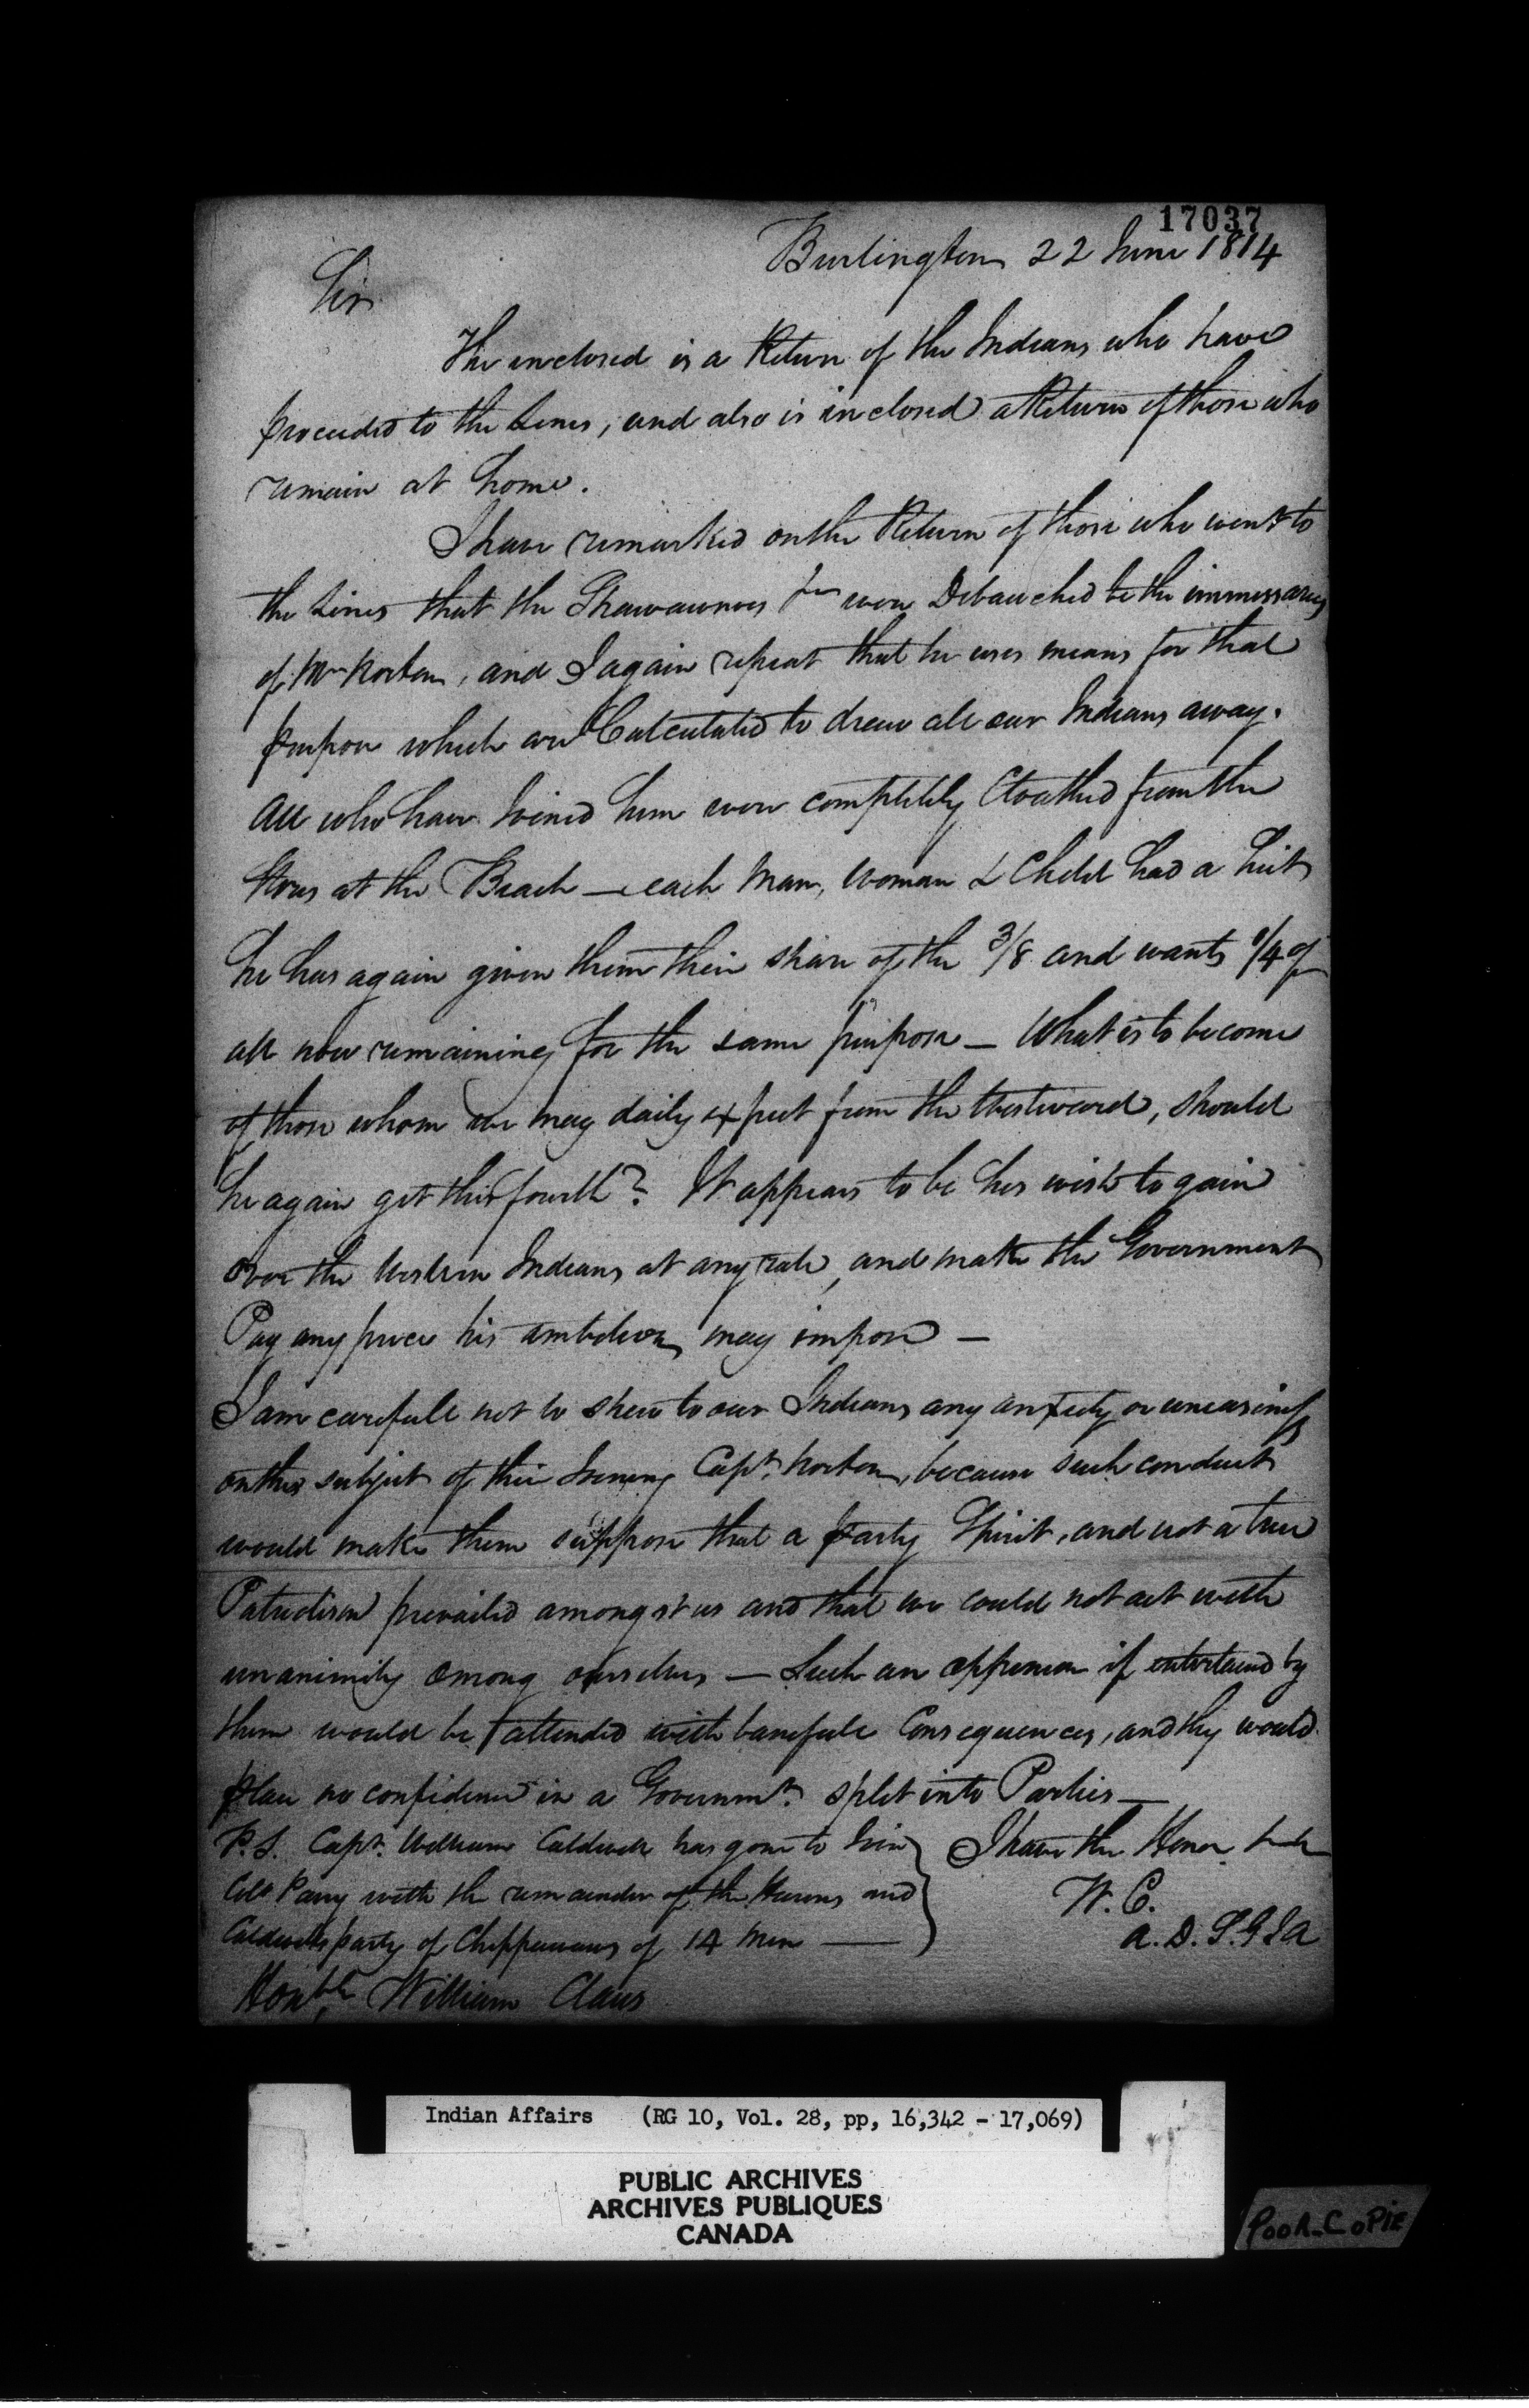 17037
Burlington 22 June 1814
Sir
The inclosed is a Return of the Indians who have
proceeded to the Lines, and also is inclosed a Return of those who
remain at home.
I have remarked on the Return of those who went to
the Lines that the Shawawnoes were Debauched be the immessaries
of Mr Norton, and I again repeat that he uses means for that
purpose which are Calculated to draw all our Indians away.
All who have Joined him were completely Cloathed from the
Stores at the Beach — each Man, Woman & Child had a
he has again given them their share of the 3/8 and wants 1/4 of
all now remaining for the same purpose — What is to become
of those whom we may daily expect from the Westward, should
he again get this fourth? It appears to be his wish to gain
over the Western Indians at any rate, and make the Government
Pay any price his ambition may impose —
I am carefull not to shew to our Indians any anxiety or uneasiness
on this subject of their Joining Capt. Norton, because such conduct
would make them suppose that a party Spirit, and not a true
Patriotism prevailed amongst us and that we could not act with
unanimity among ourselves — Such an oppinion if entertained by
them would be attended with banefull Consequences, and they would
place no confidence in a Governmt. split into Parties —
P.S. Capt. William Caldwell has gone to Join
Coll Parry with the remainder of the Hurons and
Caldwells party of Chippawaws of 14 Men —
I have the Honor
W. C.
A. D. S. G I A
Honble William Claus
Indian Affairs (RG 10, Vol. 28, pp, 16,342 - 17,069)
PUBLIC ARCHIVES
ARCHIVES PUBLIQUES
CANADA
POOR_COPIE